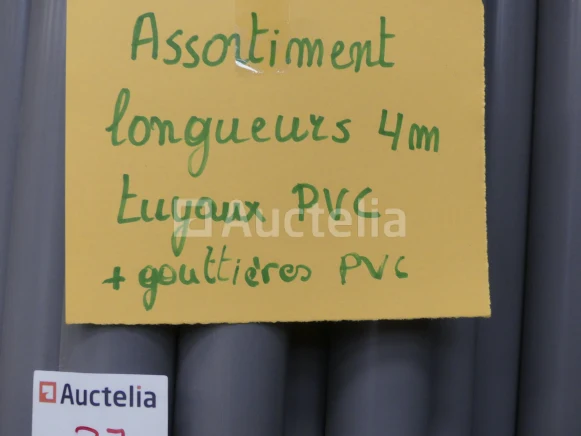 Assortiment
longueurs 4m
tuyaux PVC
Auctelia
+ gouttières PVC
Auctelia